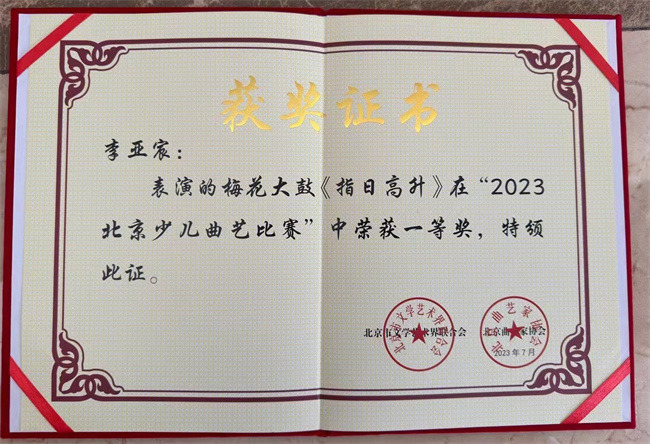 获奖证书
李亚宸：
表演的梅花大鼓《指日高升》在“2023
北京少儿曲艺比赛”中荣获一等奖，特颁
此证。
北京市文学艺术界联合会
北京曲艺家协会
2023年7月
北京市文学艺术界联合会
北京曲艺家协会